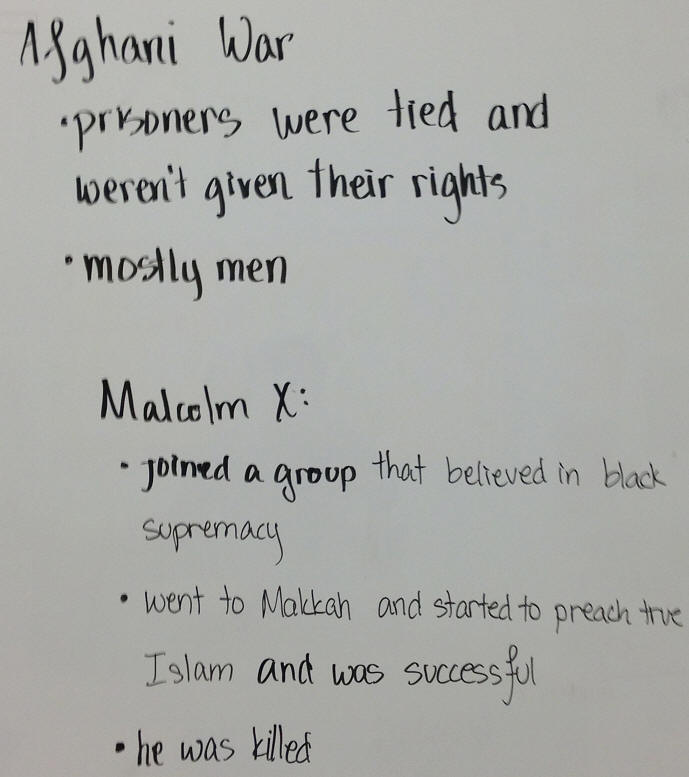 Afghani War
• prisoners were tied and
weren't given their rights
• mostly men
Malcolm X:
• joined a group that believed in black
supremacy
• went to Makkah and started to preach true
Islam and was successful
• he was killed